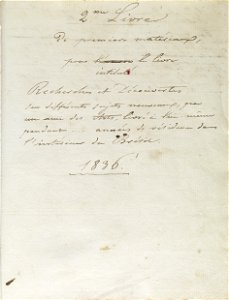 2me Livre
De premiers materiaux,
pour le livre
intitulé
Recherches et Découvertes
sur differents sujets nouveaux, par
un ami des Arts, livré à lui même
pendant années de résidence dans
l'interieur du Brésil.
1836.